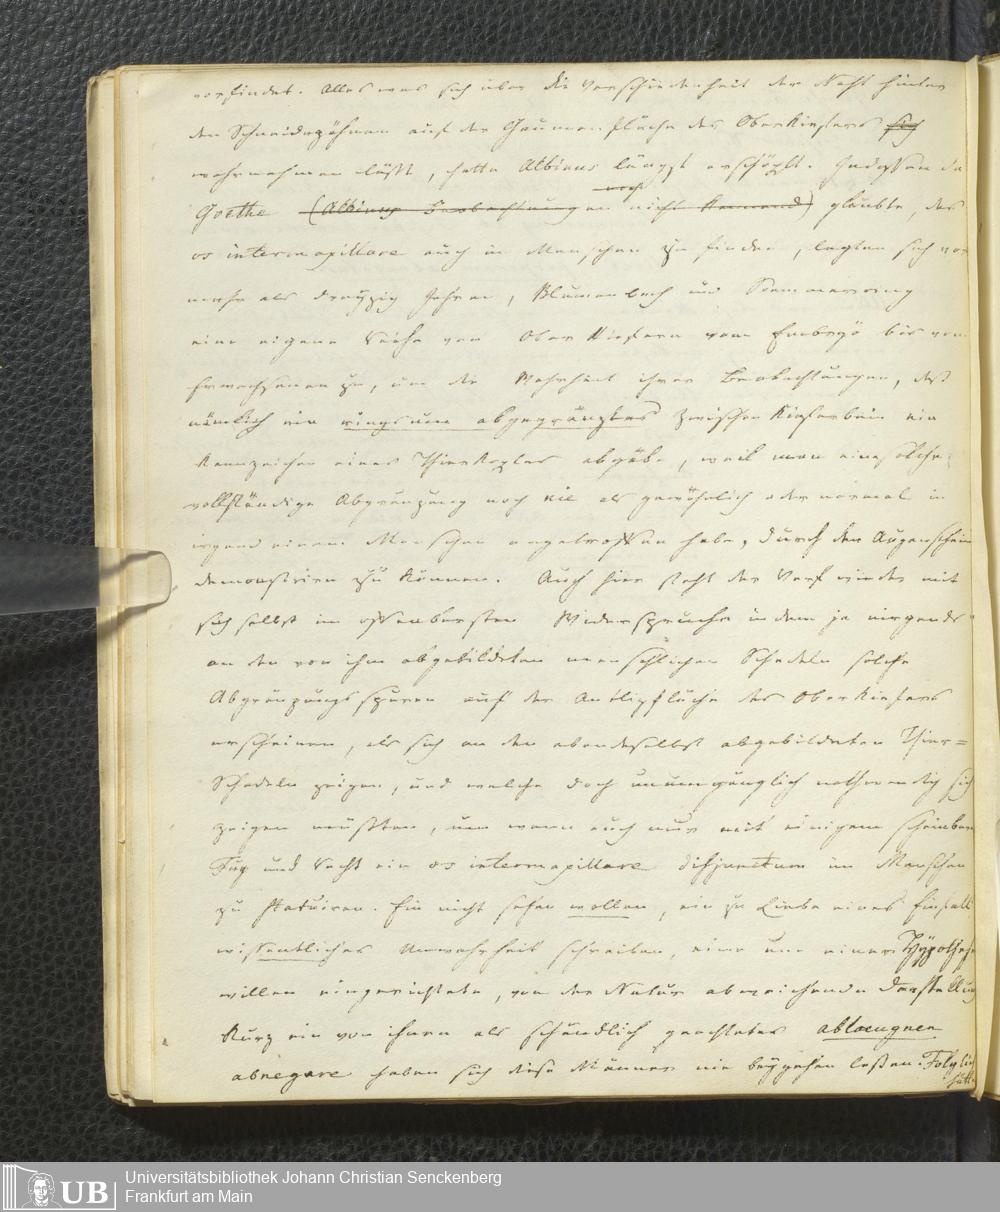 vorfindet. Alles was sich über die Verschiedenheit der Naht hinter
den Schneidezähnen auf der Gaumenfläche des Oberkiefers sich
wahrnehmen läßt, hatte Albinus längst erschöpft. Indessen da
noch
Goethe (Albinus Beobachtungen nicht kennend) glaubte, das
os intermaxillare auch im Menschen zu finden, legten sich vor
mehr als dreyzig Jahren, Blumenbach und Soemmerring
eine eigene Reihe von Oberkiefern vom Embryo bis vom
Erwachsenen zu, um die Wahrheit ihrer Beobachtungen, daß
nämlich ein ringsum abgegränztes Zwischen Kieferbein ein
Kennzeichen eines Thierkopfes abgäbe, weil man eine solche
vollständige Abgränzung noch nie als gewöhnlich oder normal in
irgend einem Menschen angetroffen habe, durch den Augenschein
demonstriren zu können. Auch hier steht der Verf wieder mit
sich selbst im offenbarsten Widerspruche indem ja nirgends
an den von ihm abgebildeten menschlichen Schedeln solche
Abgränzungsspuren auf der Antlizfläche des Oberkiefers
erscheinen, als sich an den ebendaselbst abgebildeten Thier=
Schedeln zeigen, und welche doch unumgänglich nothwendig sich
zeigen müßten, um wenn auch nur mit einigem scheinbaren
Fug und Recht ein os intermaxillare disjunctum im Menschen
zu statuiren. Ein nicht sehen wollen, ein zu Liebe eines Einfalls
wissentliches Unwahrheit schreiben, eine um einer Hypothese
willen eingerichtete, von der Natur abweichende Darstellung
Kurz ein von ihnen als schändlich geachtetes ablaeugnen
abnegare haben sich diese Männer nie beygehen laßen. Folglich
hätte
Universitätsbibliothek Johann Christian Senckenberg
Frankfurt am Main
UB